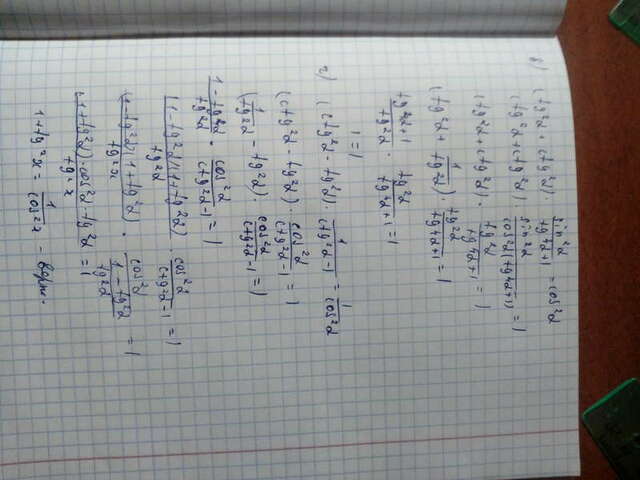 в) (tg²α + ctg²α) · sin²α / (tg⁴α + 1) = cos²α
(tg²α + ctg²α) · sin²α / (cos²α (tg⁴α + 1)) = 1
(tg²α + ctg²α) · tg²α / (tg⁴α + 1) = 1
(tg²α + 1 / tg²α) · tg²α / (tg⁴α + 1) = 1
(tg⁴α + 1) / tg²α · tg²α / (tg⁴α + 1) = 1
1 = 1
г) (ctg²α - tg²α) · 1 / (ctg²α - 1) = 1 / cos²α
(ctg²α - tg²α) · cos²α / (ctg²α - 1) = 1
(1 / tg²α - tg²α) · cos²α / (ctg²α - 1) = 1
(1 - tg⁴α) / tg²α · cos²α / (ctg²α - 1) = 1
(1 - tg²α)(1 + tg²α) / tg²α · cos²α / (ctg²α - 1) = 1
(1 - tg²α)(1 + tg²α) / tg²α · cos²α / ((1 - tg²α) / tg²α) = 1
(1 + tg²α) · cos²α · tg²α / tg²α = 1
1 + tg²x = 1 / cos²x - верно.